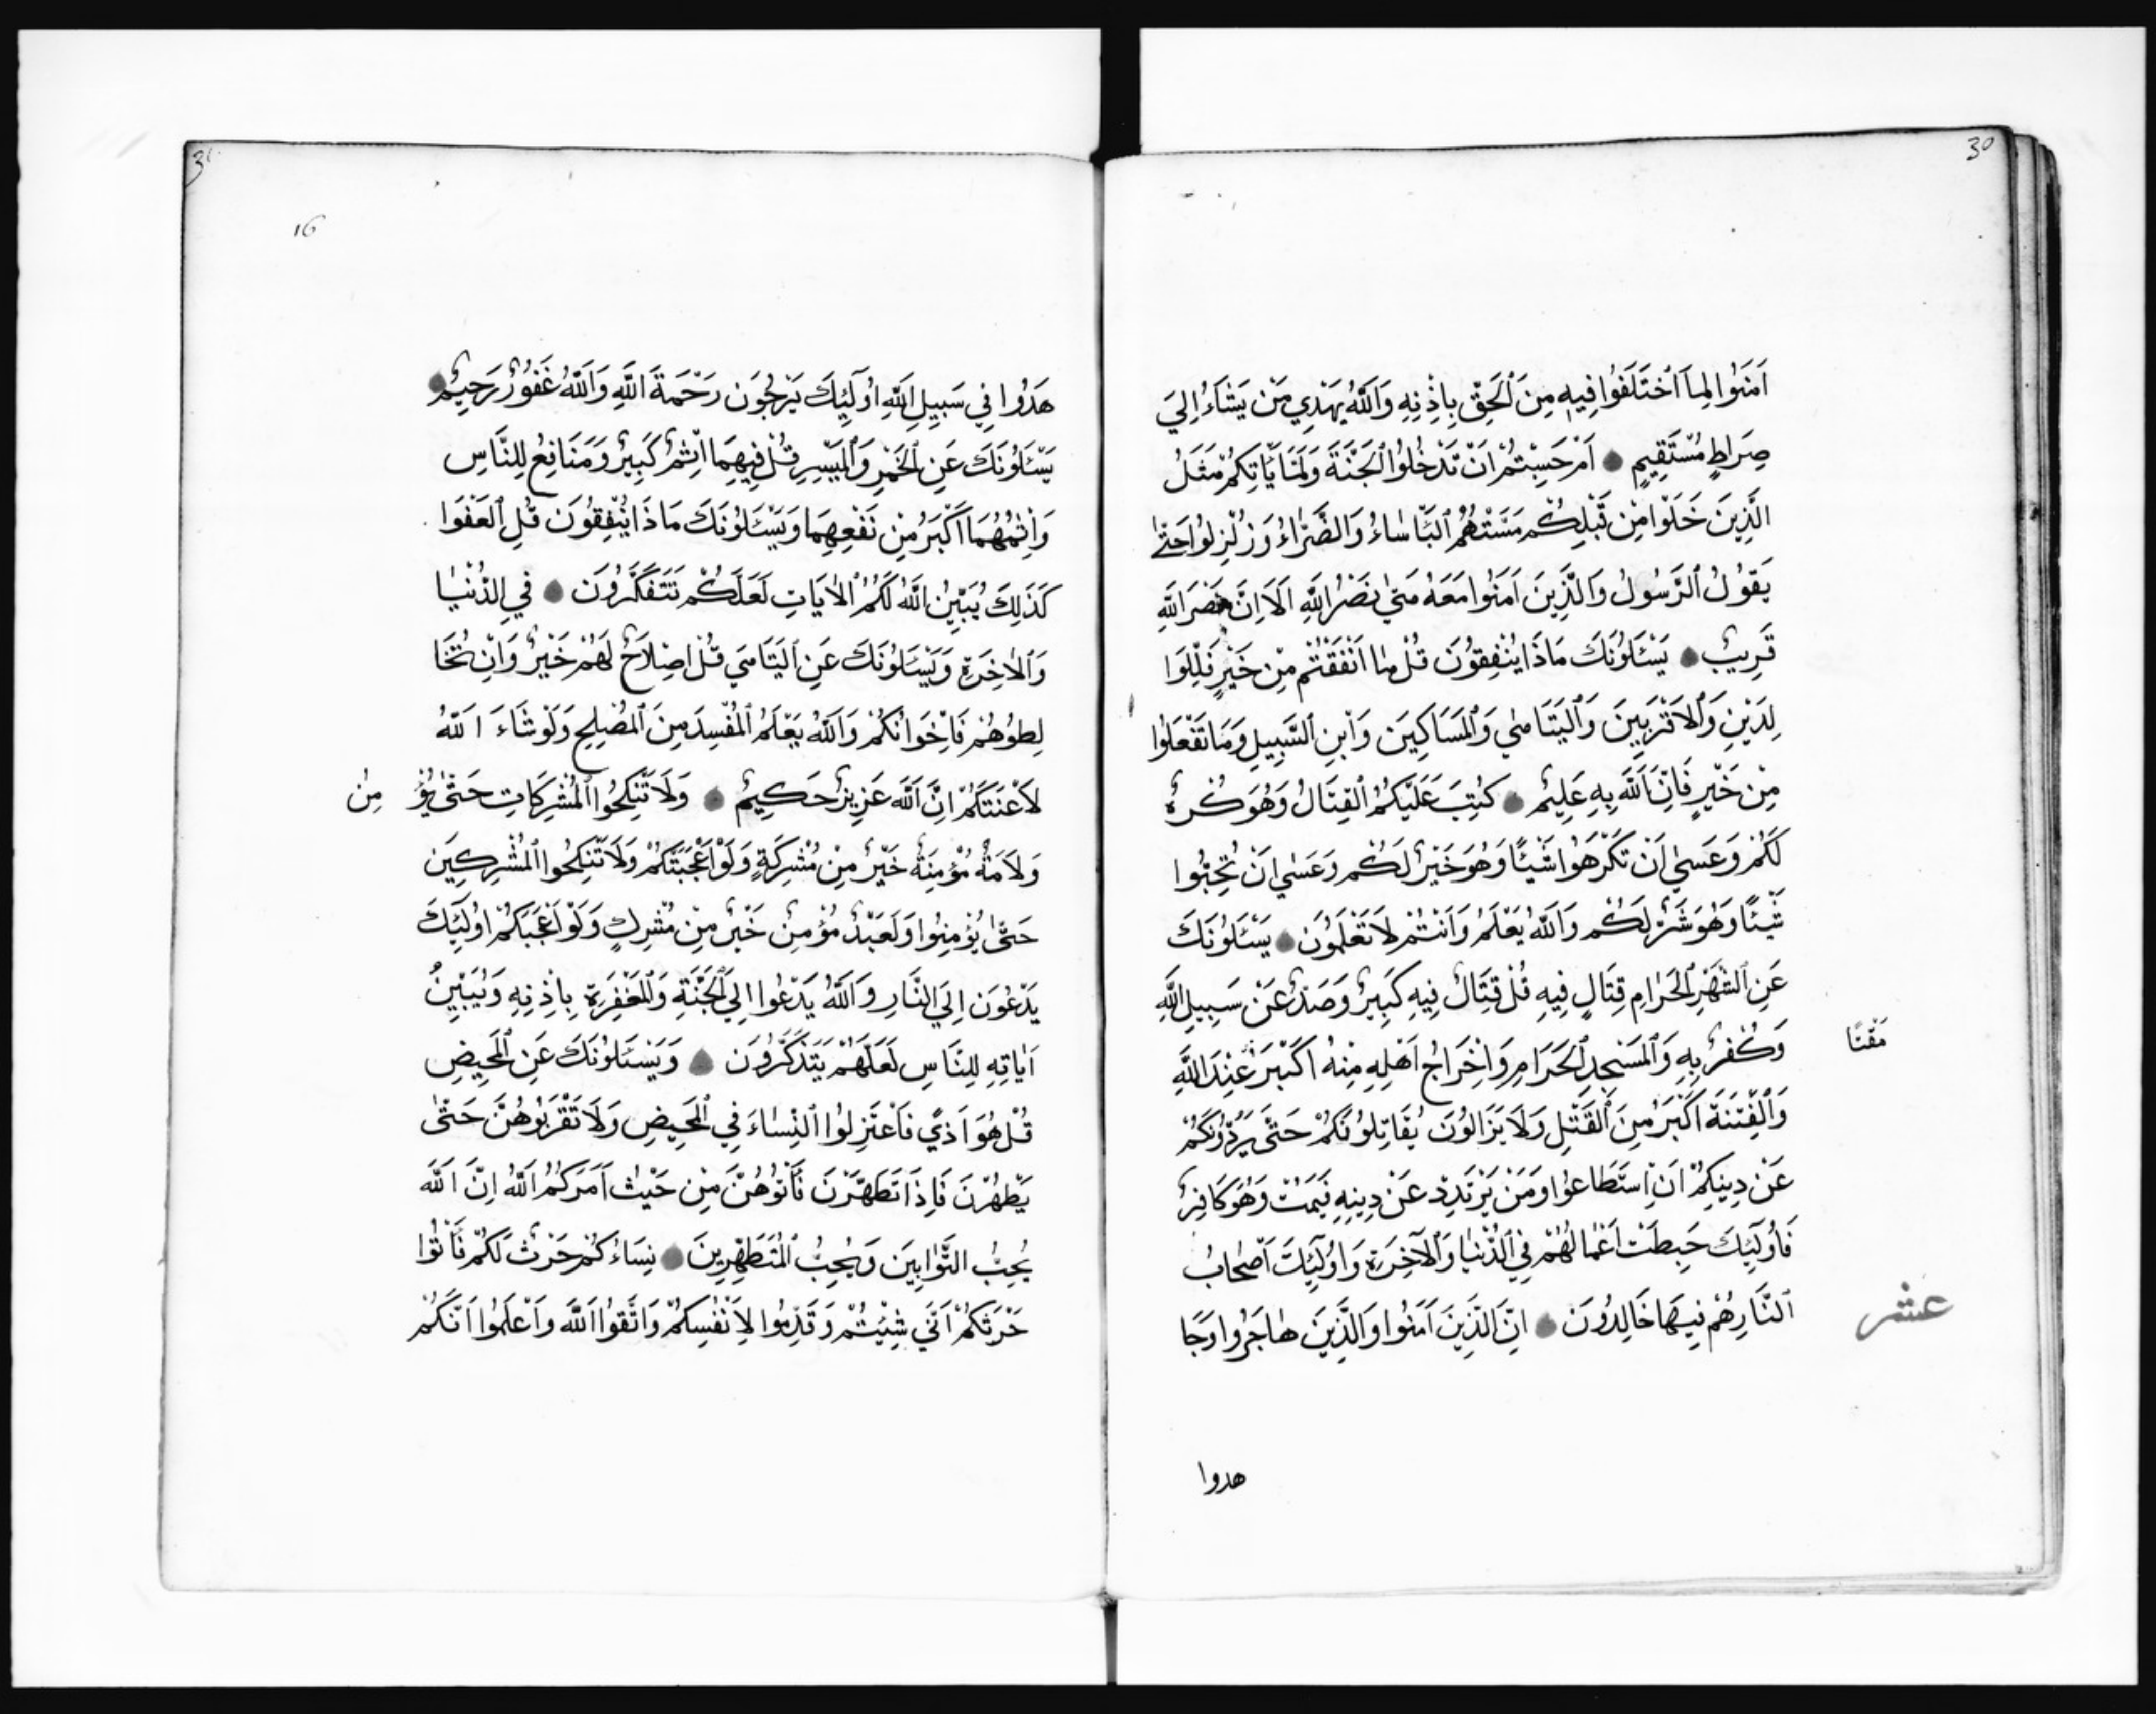 30
اٰمَنُوا لِمَا اَخْتَلَفُوا فِيهِ مِنَ ٱلْحَقِّ بِاِذْنِهِ وَاَللّٰهُ يَهْدِي مَنْ يَشَاءُ اِلَيَ
صِرَاطٍ مُسْتَقِيمٍ اَمْ حَسِبْتُمْ اَنْ تَدْخُلُوا ٱلْجَنَّةَ وَلَمَّا يَأْتِكُمْ مَثَلُ
الَّذِينَ خَلَوْا مِنْ قَبْلِكُمْ مَسَّتْهُمُ ٱلْبَأْسَاءُ وَالضَّرَّاءُ وَزُلْزِلُوا حَتّٰى
يَقُولُ ٱلرَّسُولُ وَالَّذِينَ اٰمَنُوا مَعَهُ مَتٰى نَصْرُ اللّٰهِ اَلَا اِنَّ نَصْرَ اللّٰهِ
قَرِيبٌ يَسْئَلُونَكَ مَاذَا يُنْفِقُونَ قُلْ مٰا اَنْفَقْتُمْ مِنْ خَيْرٍ فَلِلْوَا
لِدَيْنِ وَٱلْاَقْرَبِينَ وَٱلْيَتَامٰي وَٱلْمَسَاكِينَ وَٱبْنِ ٱلسَّبِيلِ وَمَا تَفْعَلُوا
مِنْ خَيْرٍ فَاِنَّ اَللّٰهَ بِهِ عَلِيمٌ كُتِبَ عَلَيْكُمُ ٱلْقِتَالُ وَهُوَ كُرْهٌ
لَكُمْ وَعَسٰي اَنْ تَكْرَهُوا شَيْئًا وَهُوَ خَيْرٌ لَكُمْ وَعَسٰي اَنْ تُحِبُّوا
شَيْئًا وَهُوَ شَرٌّ لَكُمْ وَاَللّٰهُ يَعْلَمُ وَاَنْتُمْ لَا تَعْلَمُونَ يَسْئَلُونَكَ
عَنِ ٱلشَّهْرِ ٱلْحَرَامِ قِتَالٍ فِيهِ قُلْ قِتَالٌ فِيهِ كَبِيرٌ وَصَدٌّ عَنْ سَبِيلِ اللّٰهِ
وَكُفْرٌ بِهِ وَٱلْمَسْجِدِ ٱلْحَرَامِ وَاِخْرَاجُ اَهْلِهِ مِنْهُ اَكْبَرُ عِنْدَ اللّٰهِ
مَقْتًا
وَٱلْفِتْنَةُ اَكْبَرُ مِنَ ٱلْقَتْلِ وَلَا يَزَالُونَ يُقَاتِلُونَكُمْ حَتّٰى يَرُدُّوكُمْ
عَنْ دِينِكُمْ اِنْ اِسْتَطَاعُوا وَمَنْ يَرْتَدِدْ عَنْ دِينِهِ فَيَمُتْ وَهُوَ كَافِرٌ
فَاُولٰٓئِكَ حَبِطَتْ اَعْمَالُهُمْ فِي ٱلدُّنْيَا وَٱلْآخِرَةِ وَاُولٰٓئِكَ اَصْحَابُ
ٱلنَّارِ هُمْ فِيهَا خَالِدُونَ اِنَّ الَّذِينَ اٰمَنُوا وَالَّذِينَ هَاجَرُوا وَجَا
عشر
هدوا
31
16
هَدُوا فِي سَبِيلِ اَللّٰهِ اُولٰٓئِكَ يَرْجُونَ رَحْمَةَ اللّٰهِ وَاَللّٰهُ غَفُورٌ رَحِيمٌ
يَسْئَلُونَكَ عَنِ ٱلْخَمْرِ وَٱلْمَيْسِرِ قُلْ فِيهِمَا اِثْمٌ كَبِيرٌ وَمَنَافِعُ لِلنَّاسِ
وَاِثْمُهُمَا اَكْبَرُ مِنْ نَفْعِهِمَا وَيَسْئَلُونَكَ مَاذَا يُنْفِقُونَ قُلِ ٱلْعَفْوَا
كَذٰلِكَ يُبَيِّنُ اللّٰهُ لَكُمُ ٱلْاٰيَاتِ لَعَلَّكُمْ تَتَفَكَّرُونَ فِي ٱلدُّنْيٰا
وَٱلْاٰخِرَةِ وَيَسْئَلُونَكَ عَنِ ٱلْيَتَامَي قُلْ اِصْلَاحٌ لَهُمْ خَيْرٌ وَاِنْ تُخَا
لِطُوهُمْ فَاِخْوَانُكُمْ وَاَللّٰهُ يَعْلَمُ ٱلْمُفْسِدَ مِنَ ٱلْمُصْلِحِ وَلَوْ شَاءَ اللّٰهُ
لَاَعْنَتَكُمْ اِنَّ اَللّٰهَ عَزِيزٌ حَكِيمٌ وَلَا تَنْكِحُوا ٱلْمُشْرِكَاتِ حَتّٰى يُؤْ مِنَّ
وَلَاَمَةٌ مُؤْمِنَةٌ خَيْرٌ مِنْ مُشْرِكَةٍ وَلَوْ اَعْجَبَتْكُمْ وَلَا تُنْكِحُوا ٱلْمُشْرِكِينَ
حَتّٰى يُؤْمِنُوا وَلَعَبْدٌ مُؤْمِنٌ خَيْرٌ مِنْ مُشْرِكٍ وَلَوْ اَعْجَبَكُمْ اُولٰٓئِكَ
يَدْعُونَ اِلَيَ النَّارِ وَاَللّٰهُ يَدْعُوا اِلَي ٱلْجَنَّةِ وَٱلْمَغْفِرَةِ بِاِذْنِهِ وَيُبَيِّنُ
اٰيَاتِهِ لِلنَّاسِ لَعَلَّهُمْ يَتَذَكَّرُونَ وَيَسْئَلُونَكَ عَنِ ٱلْمَحِيضِ
قُلْ هُوَ اَذيً فَاعْتَزِلُوا ٱلنِّسَاءَ فِي ٱلْمَحِيضِ وَلَا تَقْرَبُوهُنَّ حَتّٰى
يَطْهُرْنَ فَاِذَا تَطَهَّرْنَ فَأْتُوهُنَّ مِنْ حَيْثُ اَمَرَكُمُ اَللّٰهُ اِنَّ اَللّٰهَ
يُحِبُّ التَّوَّابِينَ وَيُحِبُّ ٱلْمُتَطَهِّرِينَ نِسَاءُ كُمْ حَرْثٌ لَكُمْ فَأْتُوا
حَرْثَكُمْ اَنّٰي شِئْتُمْ وَقَدِّمُوا لِاَنْفُسِكُمْ وَاتَّقُوا اَللّٰهَ وَاَعْلَمُوا اَنَّكُمْ